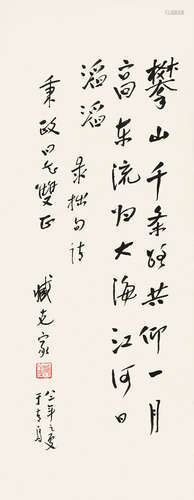 攀山千条路共仰一月
高东流归大海江河日
滔滔
录拙句请
秉政同志双正
臧克家
八一年之夏
于青岛